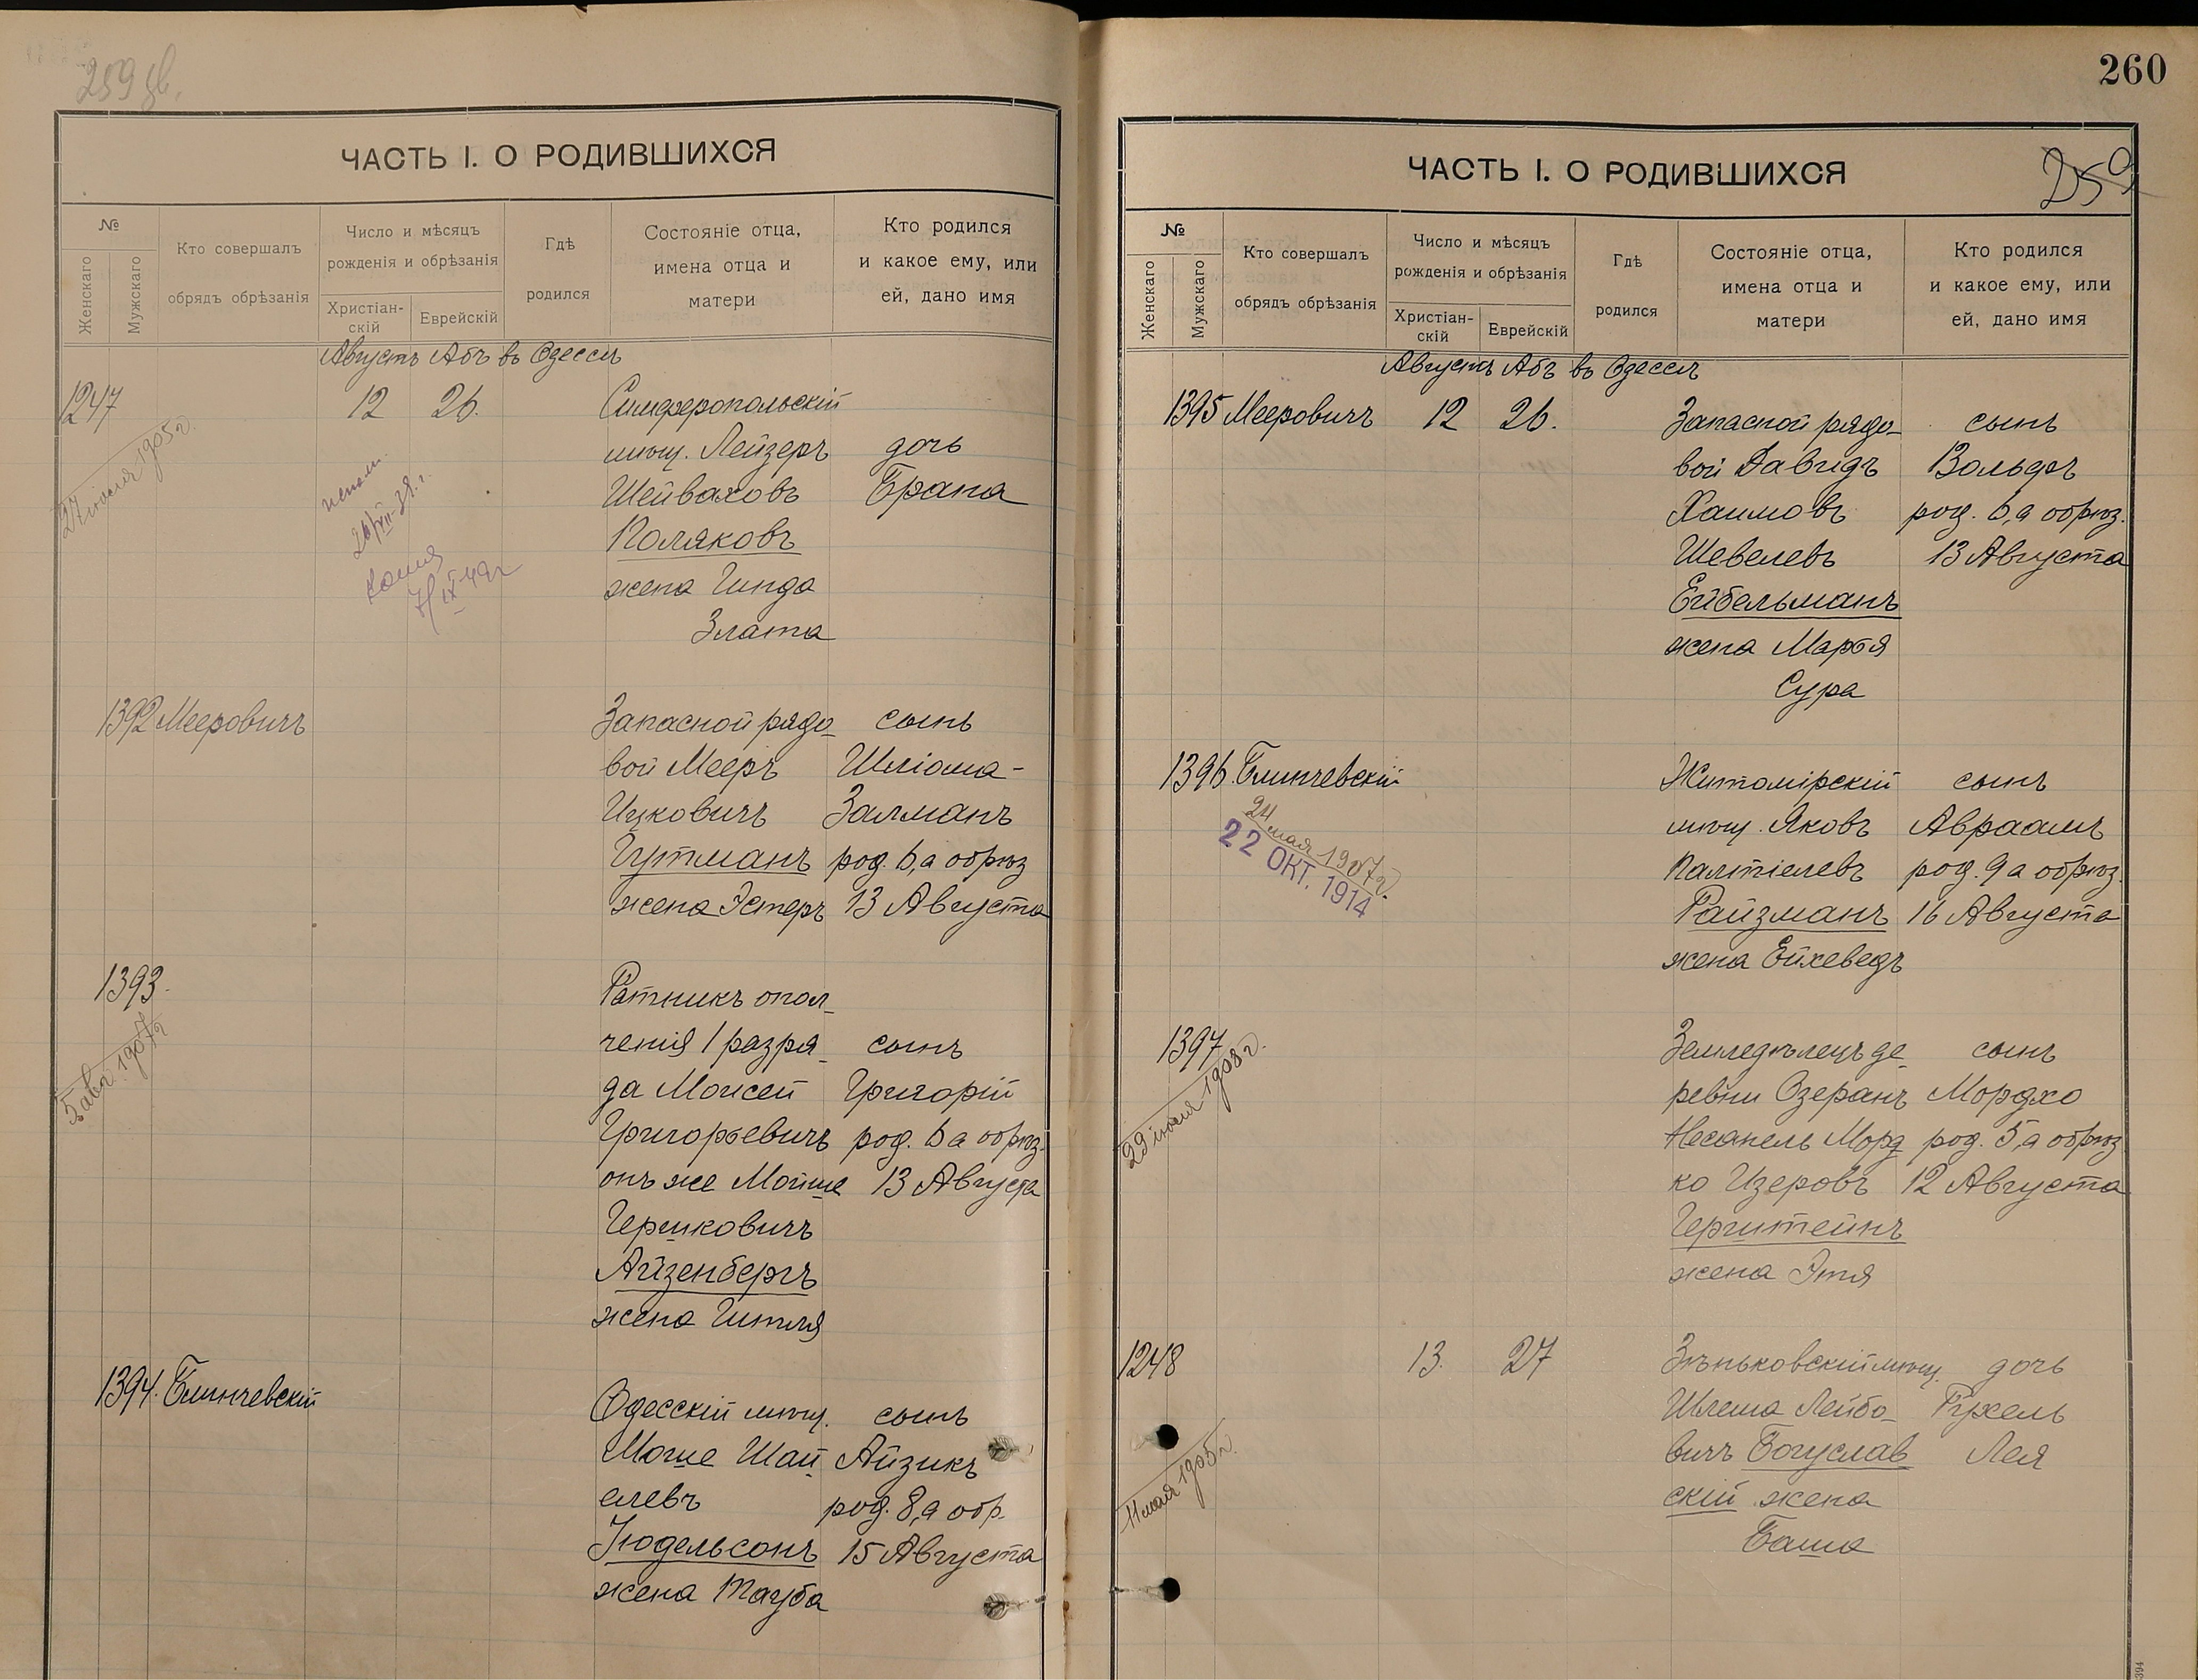 259 об.
ЧАСТЬ I. О РОДИВШИХСЯ
№
Женскаго
Мужскаго
Кто совершалъ
обрядъ обрѣзанія
Число и мѣсяцъ
рожденія и обрѣзанія
Христіан-
скій
Еврейскій
Гдѣ
родился
Состояніе отца,
имена отца и
матери
Кто родился
и какое ему, или
ей, дано имя
Августъ Абъ въ Одессѣ
1247
27 іюля 1905 г.
12 26.
Копия
Симферопольскій
мѣщ. Лейзеръ дочь
Шейваховъ Брана
Поляковъ
жена Гинда
Злата
1392 Мееровичъ
Запасной рядо- сынъ
вой Мееръ Шліома-
Ицковичъ Залманъ
Гутманъ род. 6, а обрѣз
жена Эстеръ 13 Августа
1393.
5 авг. 1907 г.
Ратникъ опол-
ченія 1 разря- сынъ
да Моисей Григорій
Григорьевичъ род. 6 а обрѣз.
онъ же Мойше 13 Августа
Гершковичъ
Айзенбергъ
жена Гитля
1394. Блинчевскій
Одесскій мѣщ. сынъ
Моше Шай- Айзикъ
елевъ род. 8, а обр.
Юдельсонъ 15 Августа
жена Тауба
260
ЧАСТЬ I. О РОДИВШИХСЯ
259
№
Женскаго
Мужскаго
Кто совершалъ
обрядъ обрѣзанія
Число и мѣсяцъ
рожденія и обрѣзанія
Христіан-
скій
Еврейскій
Гдѣ
родился
Состояніе отца,
имена отца и
матери
Кто родился
и какое ему, или
ей, дано имя
Августъ Абъ въ Одессѣ
1395 Мееровичъ 12 26.
Запасной рядо- сынъ
вой Давидъ Вольфъ
Хаимовъ род. 6, а обрѣз.
Шевелевъ 13 Августа
Ейбельманъ
жена Марья
Сура
1396. Блинчевскій
24 мая 1907 г.
22 ОКТ. 1914
Житомірскій сынъ
мѣщ. Яковъ Авраамъ
Палтіелевъ род. 9 а обрѣз.
Райзманъ 16 Августа
жена Ейхеведъ
1397
29 іюля 1908 г.
Земледѣлецъ де- сынъ
ревни Озеранъ Мордхо
Несанель Морд- род. 5, а обрѣз
ко Изеровъ 12 Августа
Герштейнъ
жена Этя
1248
11 мая 1905 г.
13. 27
Зѣньковскій мѣщ. дочь
Шлема Лейбо- Рухель
вичъ Богуслав Лея
скій жена
Баша
394